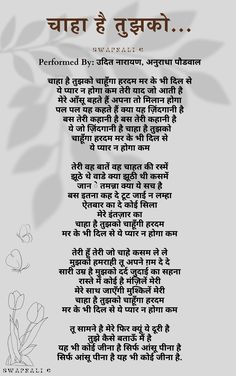 चाहा है तुझको...
SWAPNALI ©
Performed By: उदित नारायण, अनुराधा पौडवाल
चाहा है तुझको चाहूँगी हरदम मर के भी दिल से
ये प्यार न होगा कम तेरी याद जो आती है
मेरे आँसू बहते हैं अपना तो मिलान होगा
पल पल यह कहते हैं क्या यह ज़िंदगानी है
बस तेरी कहानी है बस तेरी कहानी है
ये जो ज़िंदगानी है चाहा है तुझको
चाहूँगी हरदम मर के भी दिल से
ये प्यार न होगा कम
तेरी वह बातें वह चाहत की रस्में
झूठे थे वाडे क्या झूठी थी कसमें
जान े तमन्ना क्या ये सच है
बस इतना कह दे टूट जाई न लम्हा
ऐतबार का दे कोई सिला
मेरे इंतज़ार का
चाहा है तुझको चाहूँगा हरदम
मर के भी दिल से ये प्यार न होगा कम
तेरी हूँ तेरी जो चाहे कसम ले ले
मुझको हमराही तू अपने ग़म दे दे
सारी उम्र है मुझको दर्द जुदाई का सहना
रास्ते में कोई है मंज़िलें मेरी
मेरे साथ जाएँगी मुश्किलें मेरी
चाहा है तुझको चाहूँगा हरदम
मर के भी दिल से ये प्यार न होगा कम
तू सामने है मेरे फिर क्यूं ये दूरी है
तुझे कैसे बताऊँ मैं है
यह भी कोई जीना है सिर्फ आंसू पीना है
सिर्फ आंसू पीना है यह भी कोई जीना है.
SWAPNALI ©